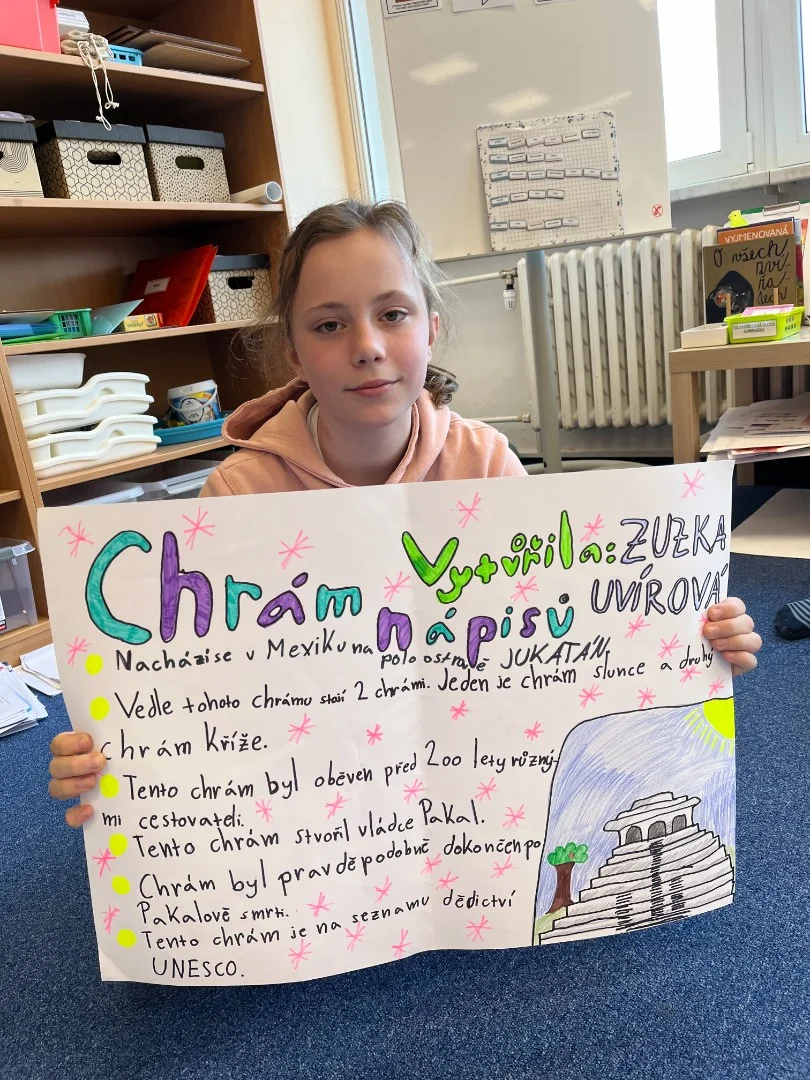 Chrám
nápisů
Vytvořila: ZUZKA
UVÍROVÁ
Nachází se v Mexiku na polo ostravě JUKATÁN.
Vedle tohoto chrámu stojí 2 chrámi. Jeden je chrám slunce a druhý
chrám Kříže.
Tento chrám byl oběven před 200 lety různý-
mi cestovateli.
Tento chrám stvořil vládce Pakal.
Chrám byl pravděpodobně dokončen po
Pakalově smrti.
Tento chrám je na seznamu dědictví
UNESCO.
VYJMENOVANÁ
O všech
zví
řa
tech